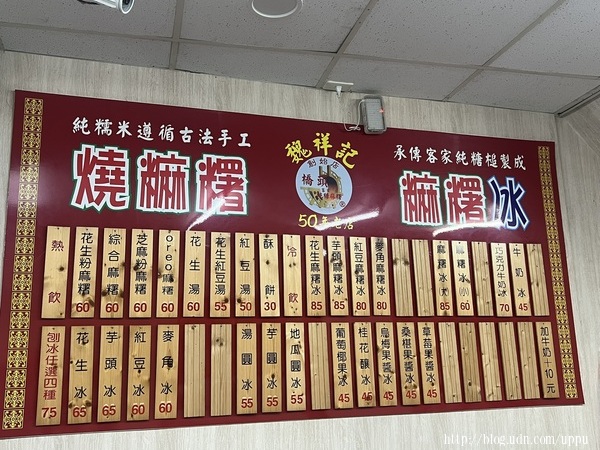 純糯米遵循古法手工
燒麻糬
魏祥記
創始店
橋頭
50年老店
承傳客家純糖槌製成
麻糬冰
熱飲
花生粉麻糬 60
綜合麻糬 60
芝麻粉麻糬 60
oreo麻糬 60
花生湯 60
花生紅豆湯 55
紅豆湯 50
酥餅 30
冷飲
花生麻糬冰 85
芋頭麻糬冰 85
紅豆麻糬冰 80
麥角麻糬冰 80
麻糬冰 85
麻糬冰 60
巧克力牛奶冰 70
牛奶冰 45
刨冰任選四種 75
花生冰 65
芋頭冰 65
紅豆冰 60
麥角冰 60
湯圓冰 55
芋圓冰 55
地瓜圓冰 55
葡萄椰果冰 45
桂花釀冰 45
烏梅果醬冰 45
桑椹果醬冰 45
草莓果醬冰 45
加牛奶+10元
http://blog.udn.com/uppu